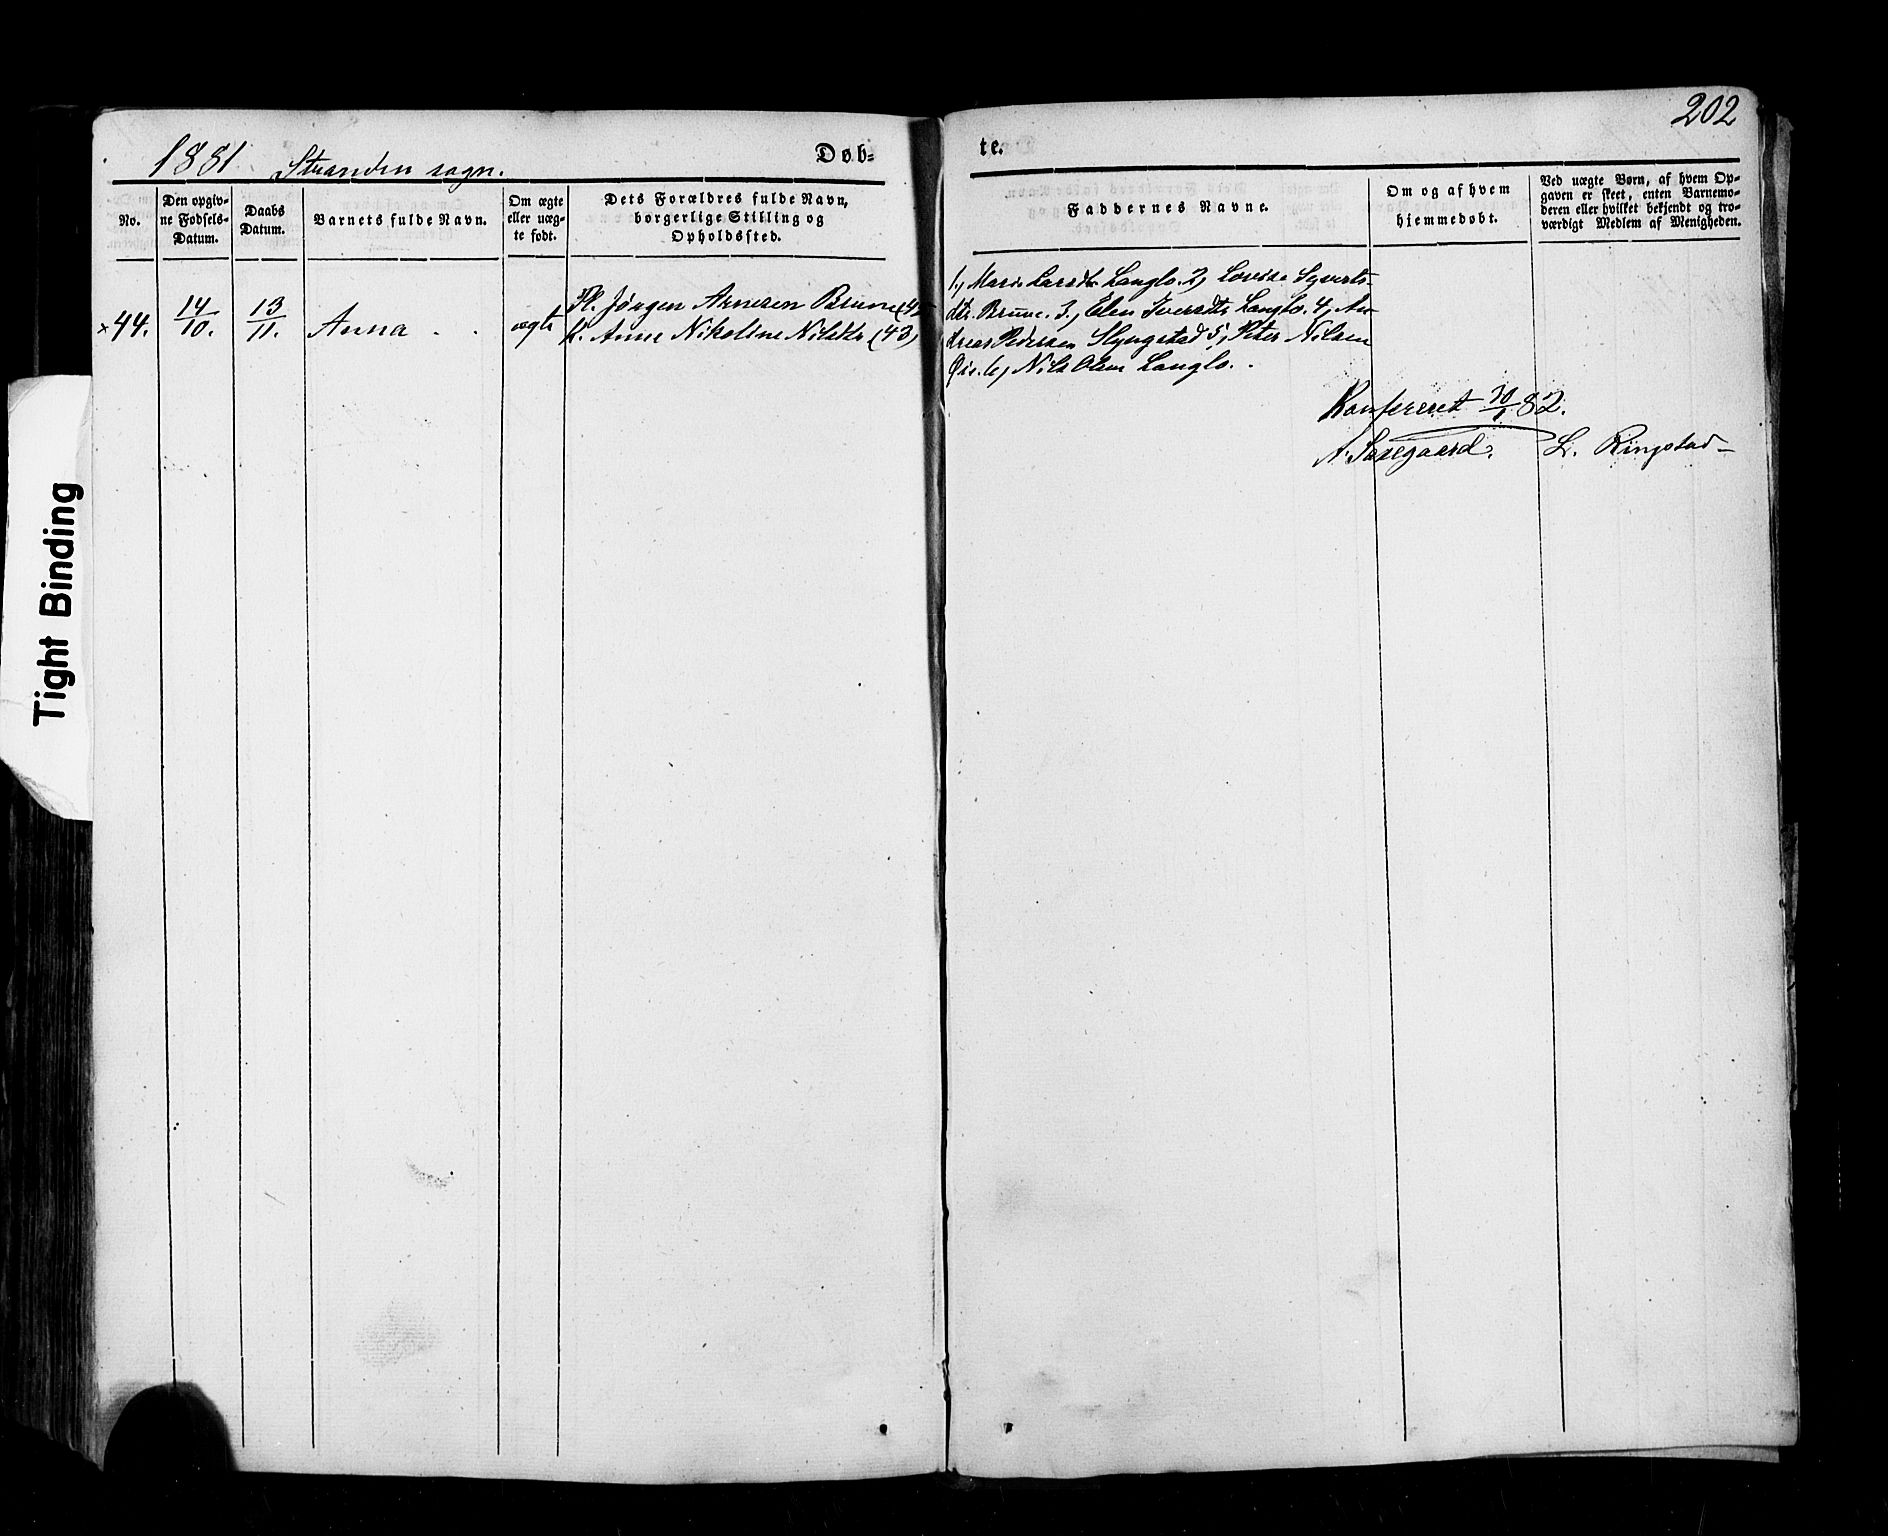 202
1881 Stranden sogn.
Døb-
te.
No.
Den opgiv-
ne Fødsels-
Datum.
Daabs
Datum.
Barnets fulde Navn.
Om ægte
eller uæg-
te født.
Dets Forældres fulde Navn,
borgerlige Stilling og
Opholdssted.
Faddernes Navne.
Om og af hvem
hjemmedøbt.
Ved uægte Børn, af hvem Op-
gaven er skeet, enten Barnemo-
deren eller hvilket bekjendt og tro-
værdigt Medlem af Menigheden.
×44.
14/10.
13/11.
Anna
ægte
Pl. Jørgen Arnesen Brune (42
k. Anne Nikoline Nilsdtr (43)
1, Marie Larsdtr Langlo. 2, Lovise Syverts-
dtr. Brune. 3, Elen Iversdtr Langlo. 4, An-
dreas Pedersen Slyngstad 5, Peter Nilsen
6, Nils Olsen Langlo.
Konfereret 30/1 82.
L. Ringstad
Tight Binding